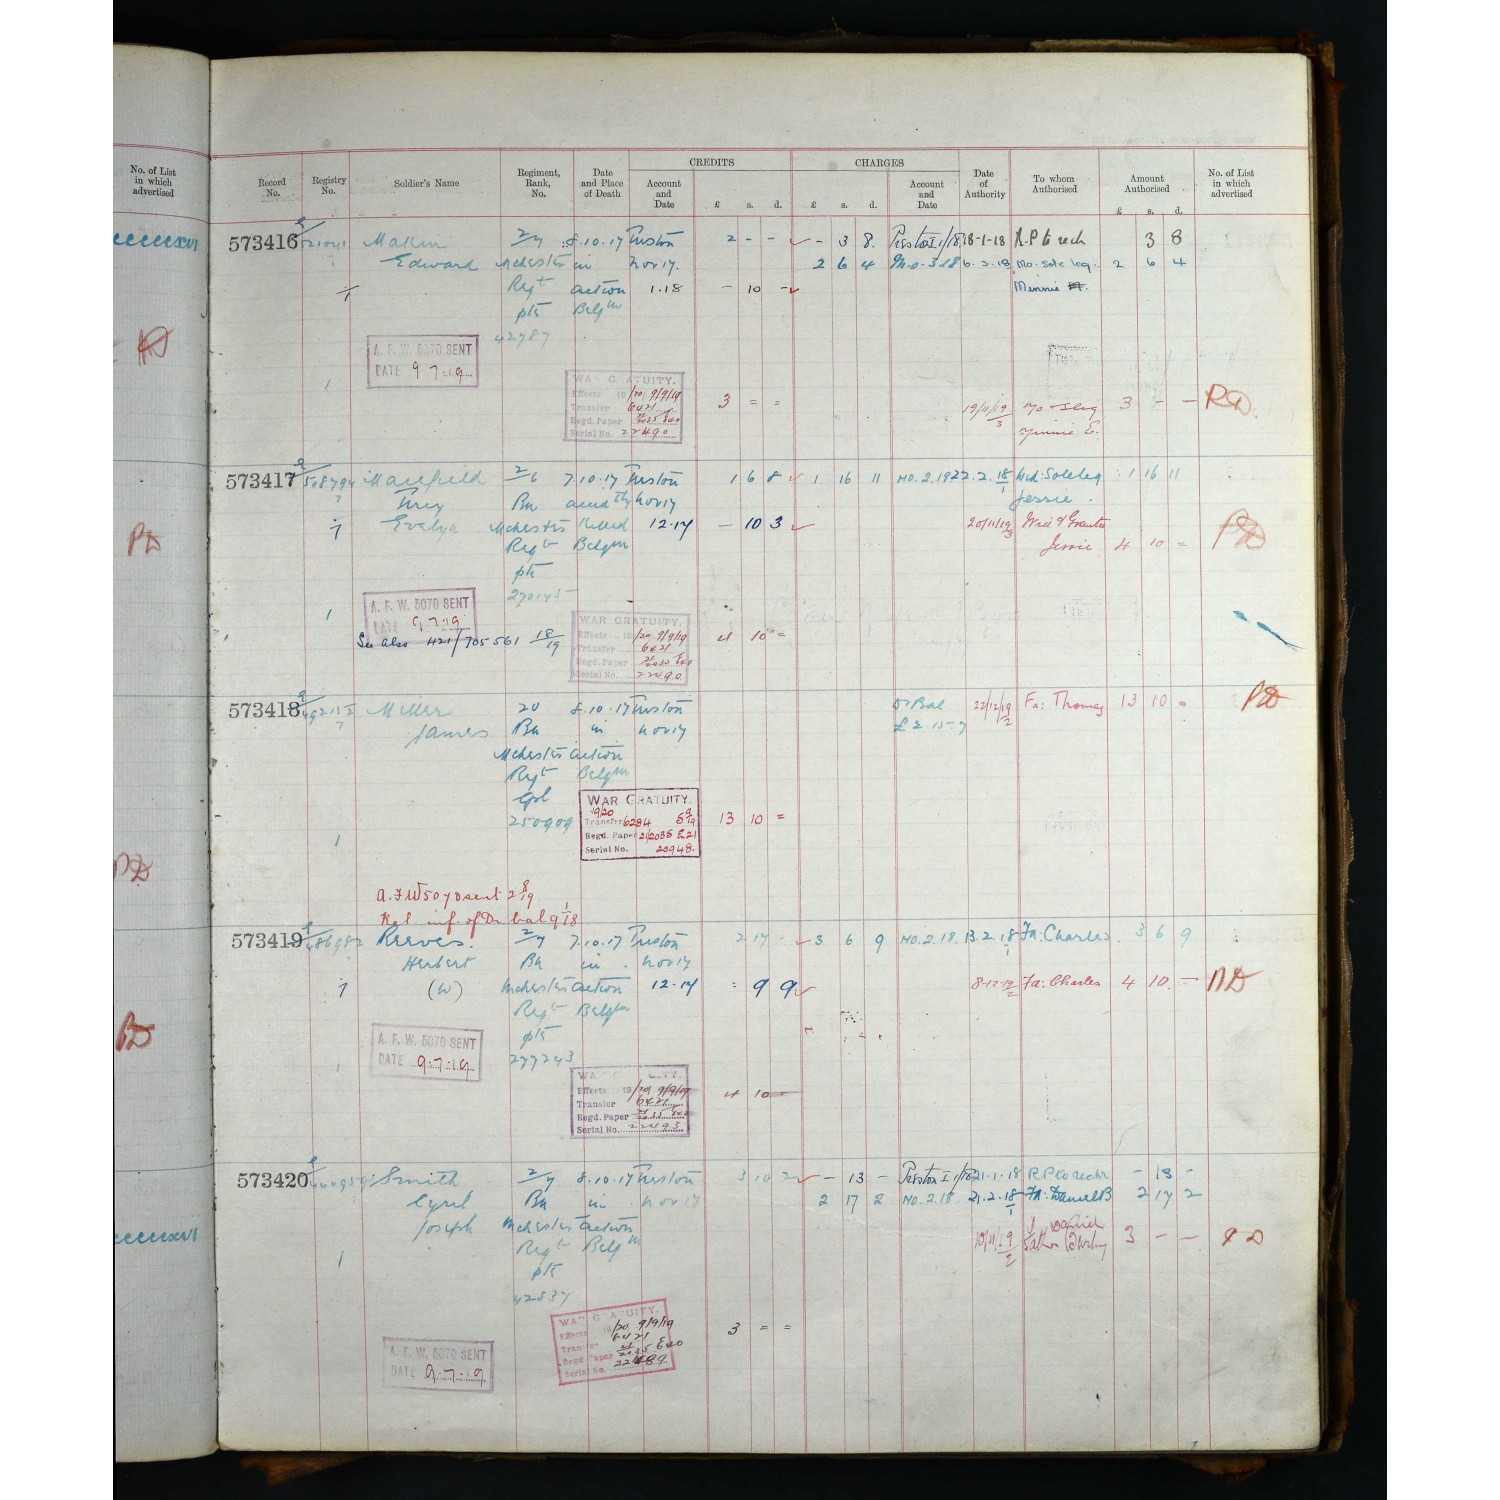 No. of List
in which
advertised
CREDITS
CHARGES
Record
No.
Registry
No.
Soldier's Name
Regiment,
Rank,
No.
Date
and Place
of Death
Account
and
Date
£ s. d.
£ s. d.
Account
and
Date
Date
of
Authority
To whom
Authorised
Amount
Authorised
£ s. d.
No. of List
in which
advertised
573416 Makin 2/7 8.10.17 Preston 2 - - - 3 8 Preston 1/18 18-1-18 R.P to rech 3 8
Edward Mchester in Nov 17. 2 6 4 Mo. 3.18 6.3.18 Mo. sole leg. 2 6 4
Regt action 1.18 - 10 - Minnie
pte Belgm
42787
A. F. W. 5070 SENT
DATE 9.7.19
WAR GRATUITY.
Effects 19/20 9/9/19
Transfer 6421
Regd. Paper
Serial No. 22490
3 = =
19/11/19 Mo & leg 3 - -
Minnie E.
573417 Marfield 2/6 7.10.17 Preston 1 6 8 1 16 11 MO. 2.19 22.2.18 Wid: Sole leg 1 16 11
Percy Bn Nov 17 Jessie.
Evelyn Mchester Killed 12.17 - 10 3 20/11/19 Wid & Grantee
Regt Belgm Jessie 4 10 =
pte
270145
A. F. W. 5070 SENT
DATE 9.7.19
See also 421/705561 18/19
WAR GRATUITY.
Effects 19/20 9/9/19
Transfer 6421
Regd. Paper
Serial No. 22490
4 10 =
573418 Miller 20 8.10.17 Preston Dr Bal 22/12/19 Fa: Thomas 13 10 =
James Bn in Nov 17 £2.15.7
Mchester action
Regt Belgm
Cpl
250909
WAR GRATUITY.
19/20
Transfer 6284 5/9/19
Regd. Paper 21/2035 E21
Serial No. 20948.
13 10 =
A.F.W5070 sent 2 8/19
Rel. inf. of Dr bal 9 1/18
573419 Reeves. 2/7 7.10.17 Preston 2 17 - 3 6 9 MO. 2.18. 13.2.18 Fa: Charles. 3 6 9
Herbert Bn in Nov 17
(W) Mchester action 12.17 9 9 8-12-19 Fa: Charles 4 10 -
Regt Belgm
pte
277243
A. F. W. 5070 SENT
DATE 9.7.19
Effects 19/20 9/9/19
Transfer 6421
Regd. Paper
Serial No. 22493
4 10 -
573420 Smith 2/7 8.10.17 Preston 3 10 2 - 13 - Preston 1/18 21-1-18 R.P to rech - 13 -
Cyril Bn in Nov 17 2 17 2 MO. 2.18 21.2.18 Fa: Daniel B 2 17 2
Joseph Mchester action 10/11/19 Father 3 - -
Regt Belgm
pte
42837
WAR GRATUITY.
Effects 19/20 9/9/19
Transfer 6421
Regd. Paper
Serial No. 22489
3 = =
A. F. W. 5070 SENT
DATE 9.7.19